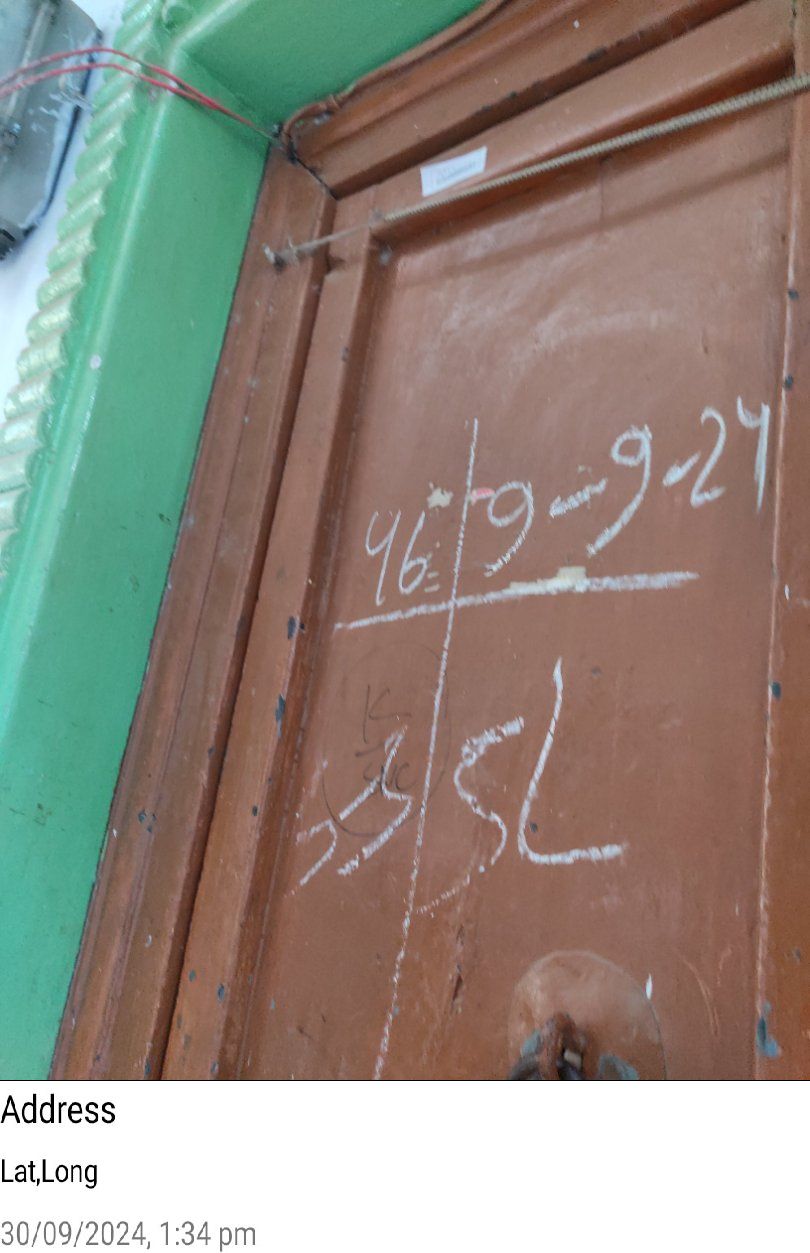 46 9-9-24
SL
Address
Lat,Long
30/09/2024, 1:34 pm